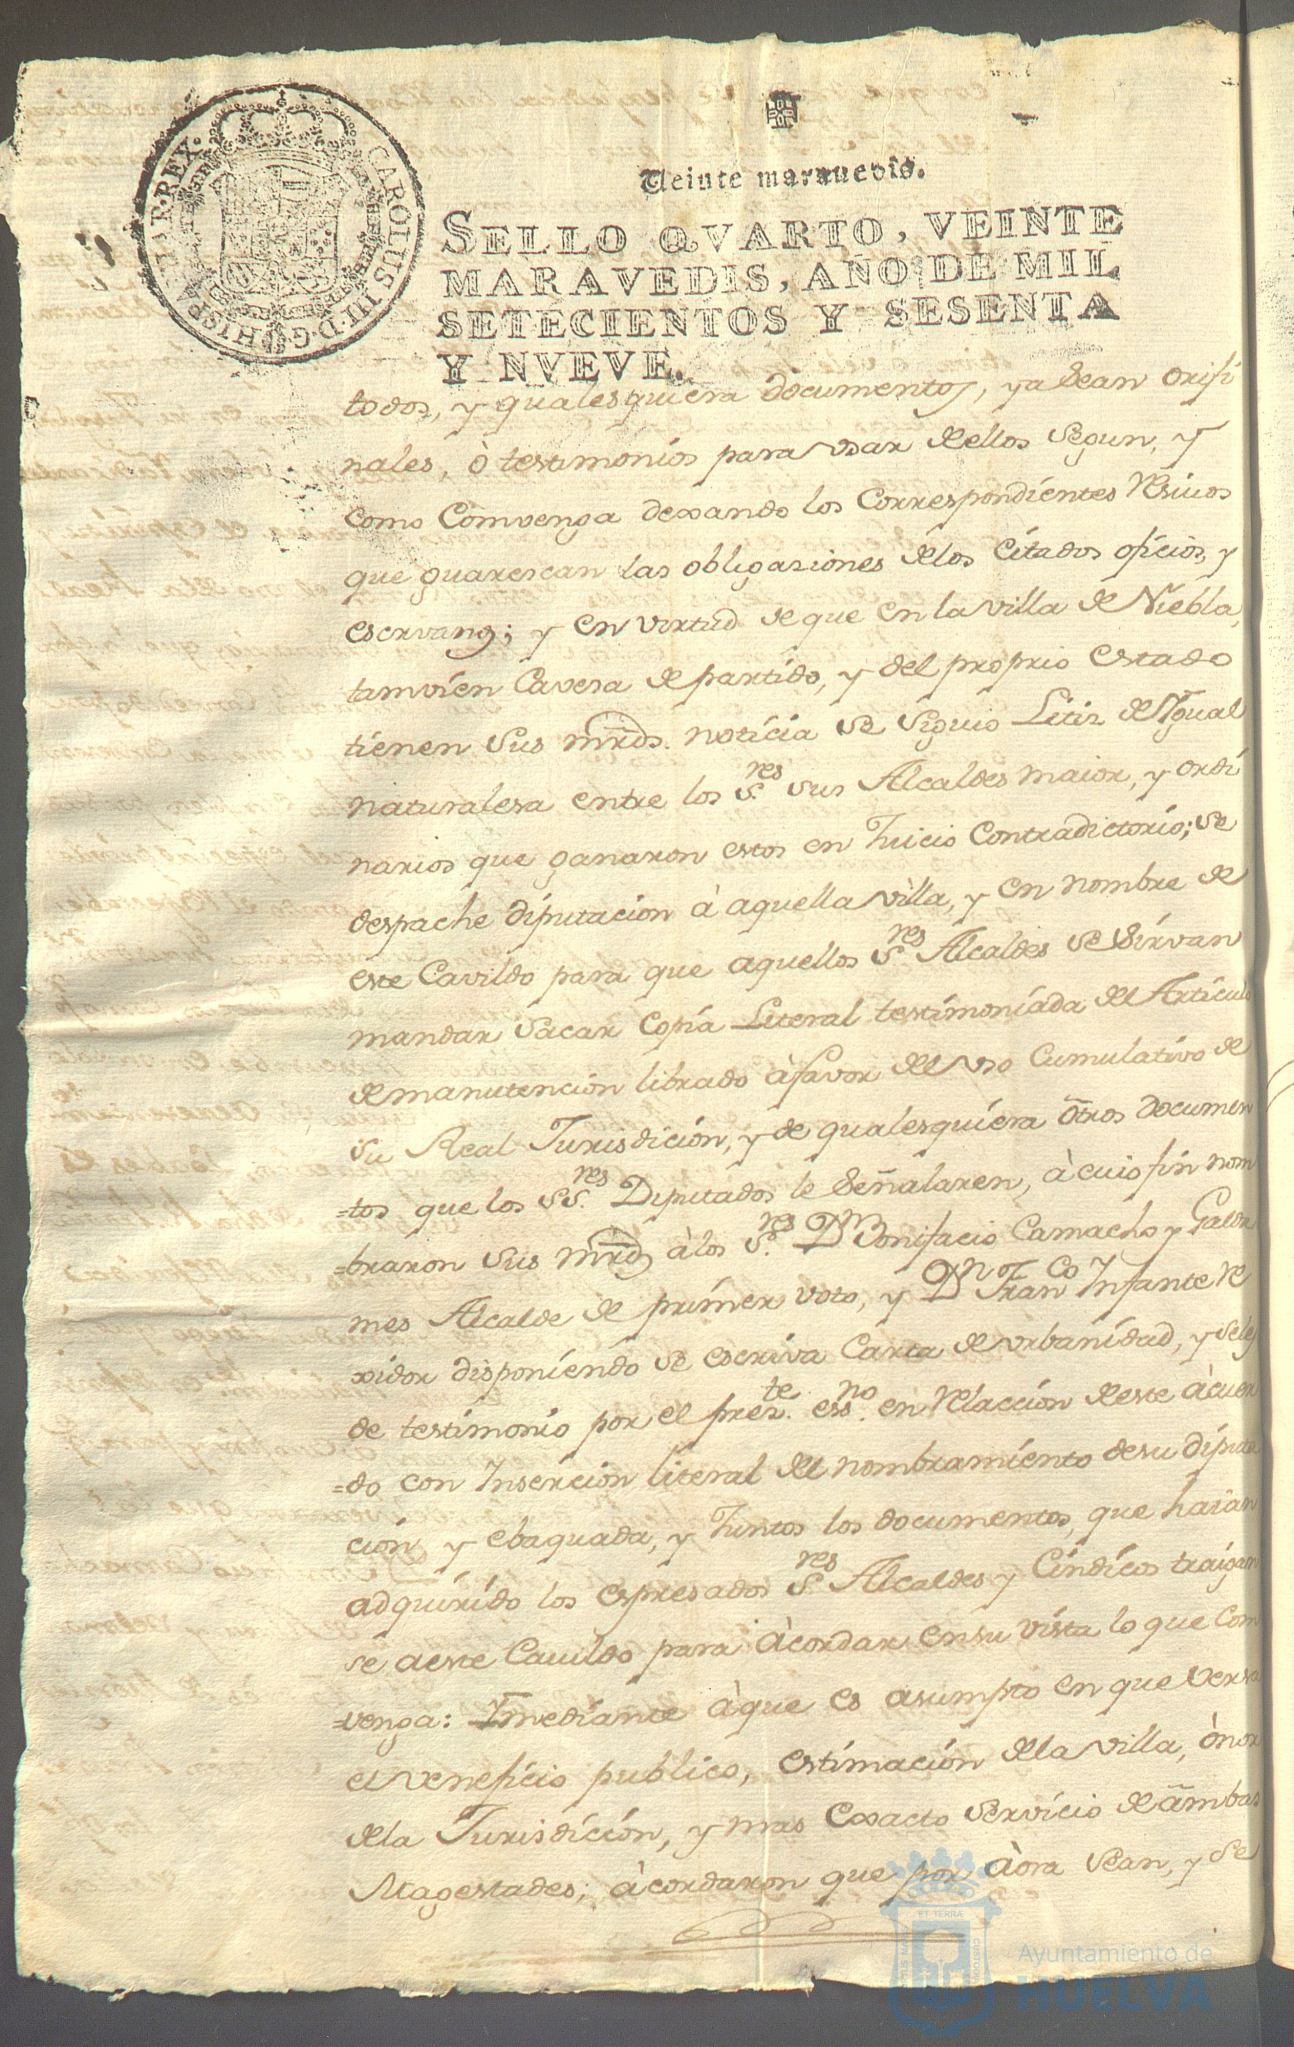 CAROLUS III D.G. HISPANIAR. REX.
Veinte marauedis.
SELLO QVARTO, VEINTE
MARAVEDIS, AÑO DE MIL
SETECIENTOS Y SESENTA
Y NVEVE.
todos, y qualesquiera documentos, ya sean orifi
nales, ò testimonios para vsar dellos segun, y
como Comvenga dexando los Correspondientes Resivos
que guarescan las obligaziones delos citados oficios, y
escrvanos; y en virtud de que en la villa de Niebla,
tamvien Cavesa de partido, y del proprio estado
tienen sus mrds. noticia se siguio Litiz de Ygual
naturalesa entre los S.res sus Alcaldes maior, y ordi
narios que ganaron estos en Juicio Contradictorio; se
despache diputacion à aquella villa, y en nombre de
este Cavildo para que aquellos S.res Alcaldes se sirvan
mandar sacar Copia Literal testimoniada del Articulo
de manutencion librado àfavor del vso Cumulativo de
su Real Jurisdicion, y de qualesquiera otros documen
=tos que los SS.res Diputados le señalaren, à cuio fin nom
=braron sus mrds àlos S.res Dn Bonifacio Camacho y Galdr
mes Alcalde de primer voto, y Dn Franco Infante Re
xidor disponiendo se escriva Carta de vrbanidad, y seles
de testimonio por el prez.te esno. en Relaccion deste àcuer
=do con Insercion literal del nombramiento desu diputa
cion y ebaquada, y Juntos los documentos, que haian
adquirido los espresados S.res Alcaldes y Cindicos traigan
se aeste Cauildo para àcordar ensu vista lo que Com
=venga: Ymediante àque es asumpto en que versa
el veneficio publico, estimacion dela villa, ònor
dela Jurisdiccion, y mas Exacto servicio de ambas
Magestades; àcordaron que por àora sean, y se
ET TERRÆ
Ayuntamiento de
HUELVA